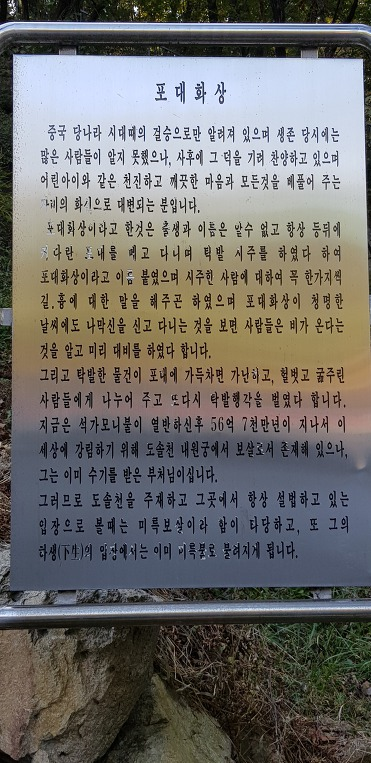 포대화상
중국 당나라 시대때의 걸승으로만 알려져 있으며 생존 당시에는
많은 사람들이 알지 못했으나, 사후에 그 덕을 기려 찬양하고 있으며
어린아이와 같은 천진하고 깨끗한 마음과 모든것을 베풀어 주는
자비의 화신으로 대변되는 분입니다.
포대화상이라고 한것은 출생과 이름은 알수 없고 항상 등뒤에
커다란 포대를 메고 다니며 탁발 시주를 하였다 하여
포대화상이라고 이름 붙였으며 시주한 사람에 대하여 꼭 한가지씩
길.흉에 대한 말을 해주곤 하였으며 포대화상이 청명한
날씨에도 나막신을 신고 다니는 것을 보면 사람들은 비가 온다는
것을 알고 미리 대비를 하였다 합니다.
그리고 탁발한 물건이 포대에 가득차면 가난하고, 헐벗고 굶주린
사람들에게 나누어 주고 또다시 탁발행각을 벌였다 합니다.
지금은 석가모니불이 열반하신후 56억 7천만년이 지나서 이
세상에 강림하기 위해 도솔천 내원궁에서 보살로서 존재해 있으나,
그는 이미 수기를 받은 부처님이십니다.
그러므로 도솔천을 주재하고 그곳에서 항상 설법하고 있는
입장으로 볼때는 미륵보살이라 함이 타당하고, 또 그의
하생(下生)의 입장에서는 이미 미륵불로 불려지게 됩니다.